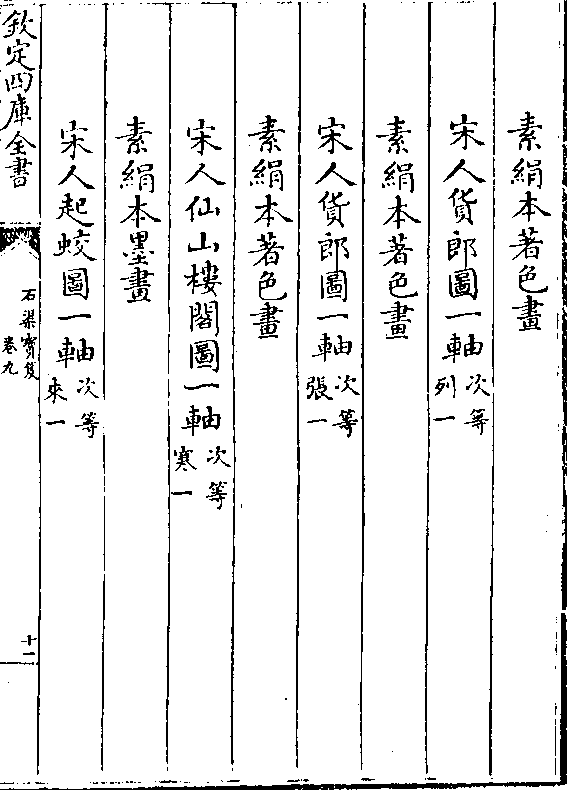 素絹本著色畫
宋人貨郎圖一軸次等列一
素絹本著色畫
宋人貨郎圖一軸次等張一
素絹本著色畫
宋人仙山樓閣圖一軸次等寒一
素絹本墨畫
宋人起蛟圖一軸次等來一
欽定四庫全書
石渠寶笈
卷九
十二